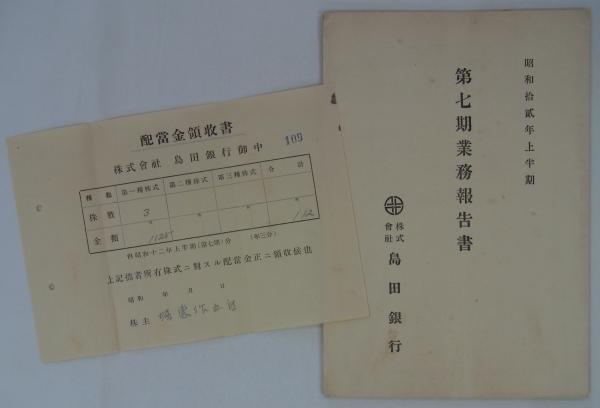 昭和拾貳年上半期
第七期業務報告書
株式會社 島田銀行
配當金領收書
109
株式會社 島田銀行御中
種類 第一種株式 第二種株式 第三種株式 合計
株數 3
金額 1125 112
但昭和十二年上半期(第七期)分 (年三分)
上記拙者所有株式ニ對スル配當金正ニ領收候也
昭和 年 月 日
株主